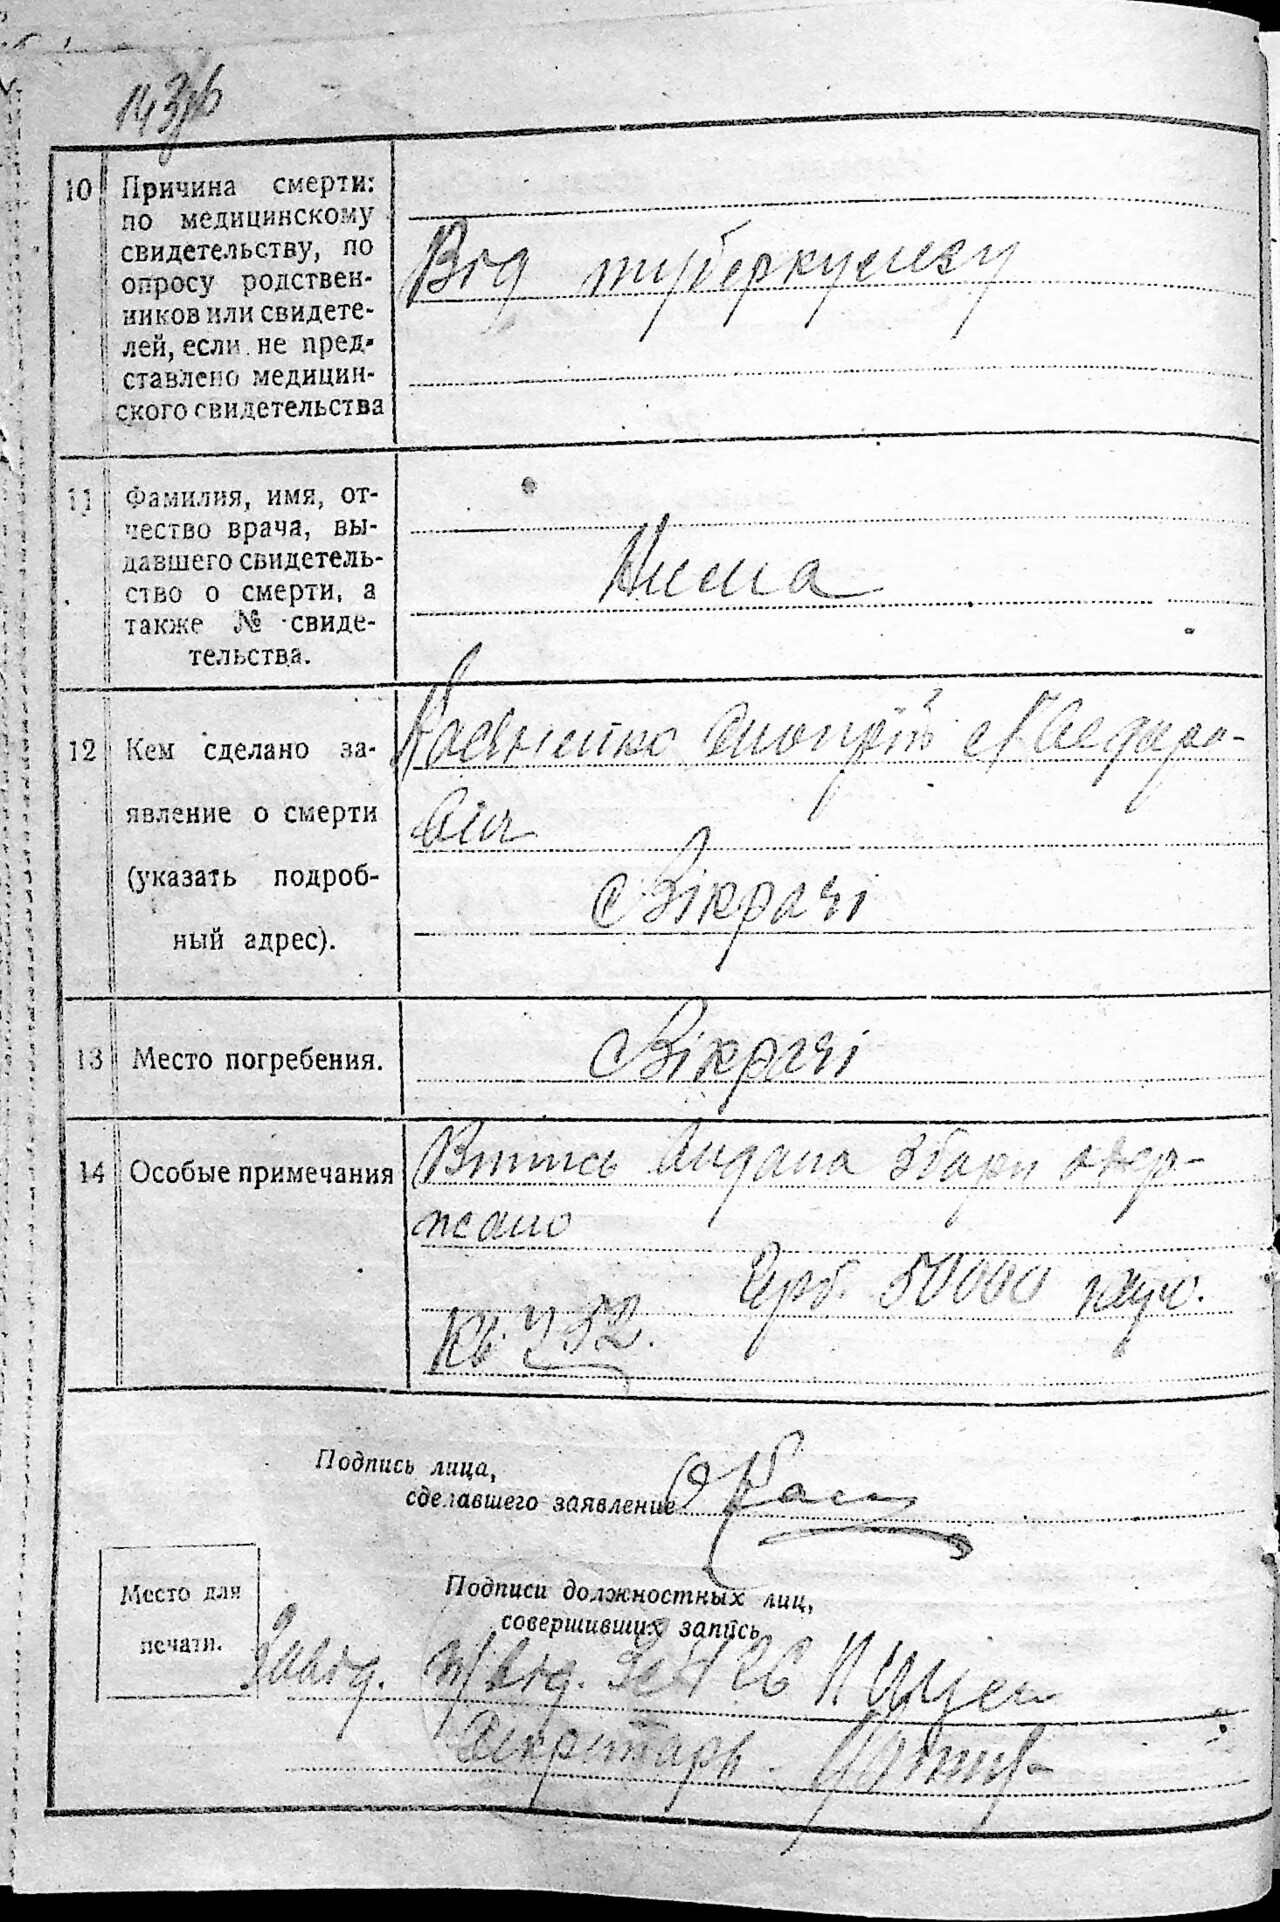 10 Причина смерти:
по медицинскому
свидетельству, по
опросу родствен-
ников или свидете-
лей, если не пред-
ставлено медицин-
ского свидетельства
Від туберкулезу
11 Фамилия, имя, от-
чество врача, вы-
давшего свидетель-
ство о смерти, а
также № свиде-
тельства.
Нема
12 Кем сделано за-
явление о смерти
(указать подроб-
ный адрес).
вич
с Вікрачі
13 Место погребения.
с Вікрачі
14 Особые примечания
Видана збори одер-
жано
Герб. 50000 крб.
Кв 752.
Подпись лица,
сделавшего заявление
Подписи должностных лиц,
совершивших запись
Место для
печати.
Завід. п/від.
Секретарь